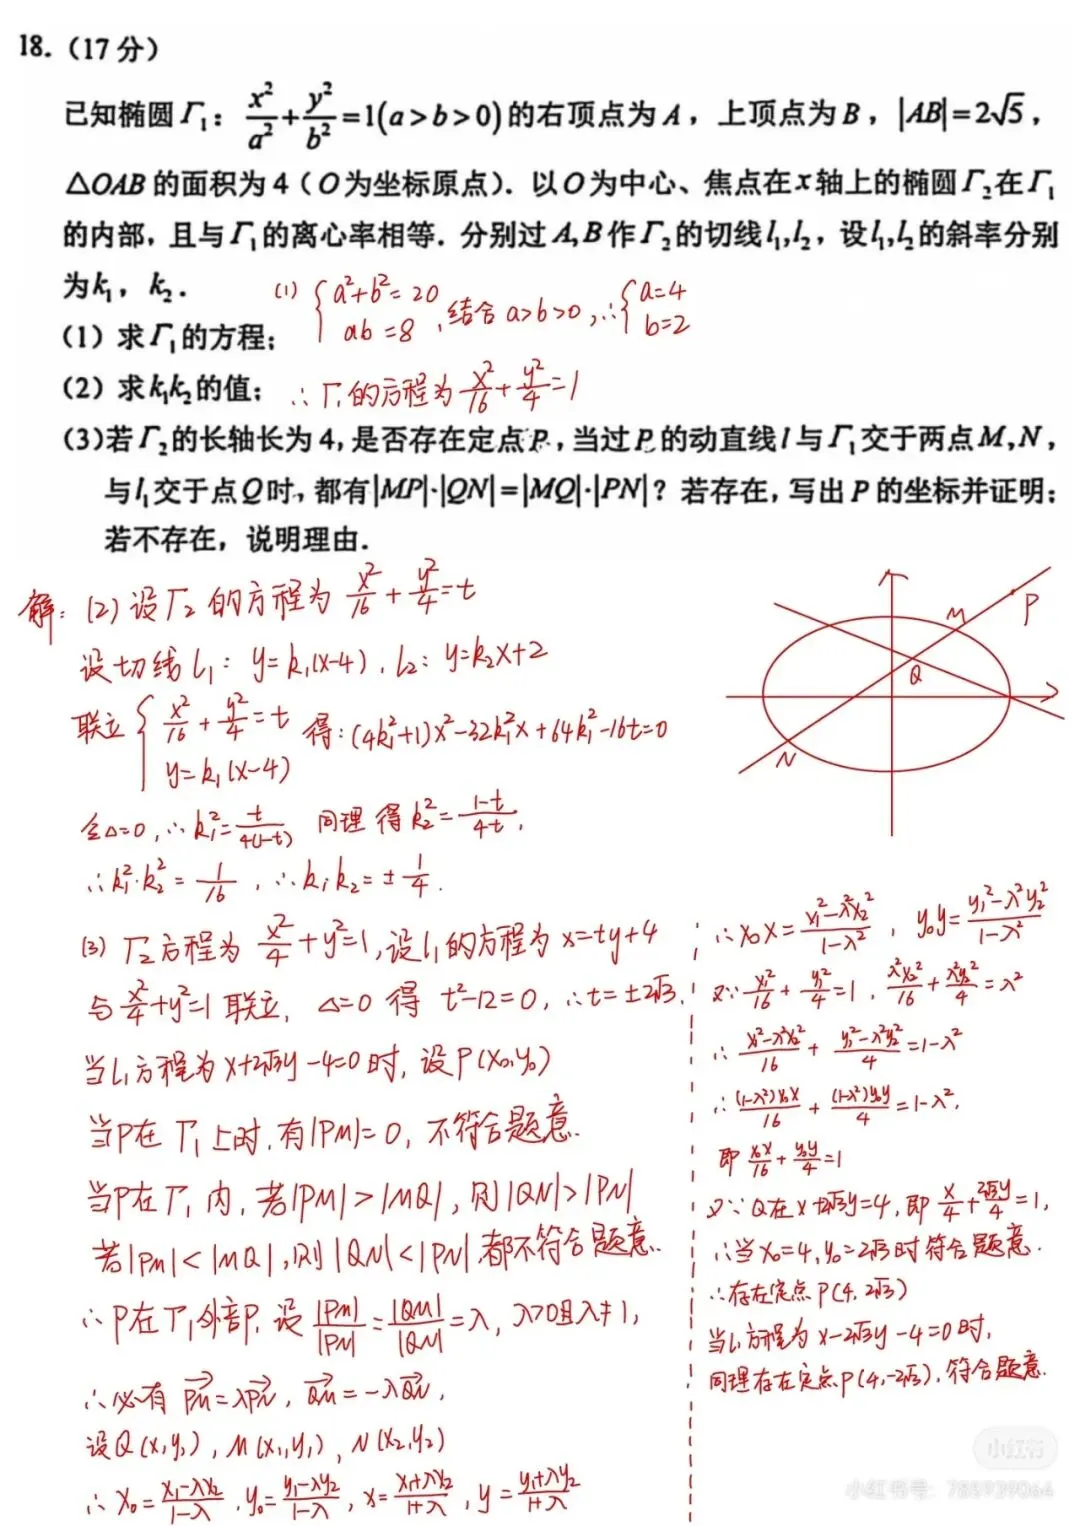 18.（17分）
已知椭圆Γ₁：x²/a²+y²/b²=1(a>b>0)的右顶点为A，上顶点为B，|AB|=2√5，
△OAB的面积为4（O为坐标原点）．以O为中心、焦点在x轴上的椭圆Γ₂在Γ₁
的内部，且与Γ₁的离心率相等．分别过A,B作Γ₂的切线l₁,l₂，设l₁,l₂的斜率分别
为k₁，k₂．
(1) {a²+b²=20, ab=8，结合a>b>0，∴{a=4, b=2
（1）求Γ₁的方程；
（2）求k₁k₂的值；
∴Γ₁的方程为x²/16+y²/4=1
（3）若Γ₂的长轴长为4，是否存在定点P，当过P的动直线l与Γ₁交于两点M,N，
与l₁交于点Q时，都有|MP|·|QN|=|MQ|·|PN|？若存在，写出P的坐标并证明；
若不存在，说明理由．
解：(2)设Γ₂的方程为x²/16+y²/4=t
设切线l₁：y=k₁(x-4)，l₂：y=k₂x+2
联立{x²/16+y²/4=t, y=k₁(x-4) 得：(4k₁²+1)x²-32k₁²x+64k₁²-16t=0
令△=0，∴k₁²=t/4(1-t) 同理得k₂²=1-t/4t，
∴k₁²·k₂²=1/16，∴k₁k₂=±1/4．
M
P
Q
N
(3) Γ₂方程为x²/4+y²=1，设l₁的方程为x=ty+4
与x²/4+y²=1联立，△=0得 t²-12=0，∴t=±2√3．
当l₁方程为x+2√3y-4=0时，设P(x₀,y₀)
当P在Γ₁上时，有|PM|=0，不符合题意．
当P在Γ₁内，若|PM|>|MQ|，则|QN|>|PN|
若|PM|<|MQ|，则|QN|<|PN|，都不符合题意．
∴P在Γ₁外部P．设|PM|/|PN|=|QM|/|QN|=λ，λ>0且λ≠1，
∴必有PM→=λPN→，QM→=-λQN→，
设Q(x,y)，M(x₁,y₁)，N(x₂,y₂)
∴x₀=x₁-λx₂/1-λ，y₀=y₁-λy₂/1-λ，x=x₁+λx₂/1+λ，y=y₁+λy₂/1+λ
∴x₀x=x₁²-λ²x₂²/1-λ²，y₀y=y₁²-λ²y₂²/1-λ²
又∵x₁²/16+y₁²/4=1，λ²x₂²/16+λ²y₂²/4=λ²
∴x₁²-λ²x₂²/16+y₁²-λ²y₂²/4=1-λ²
∴(1-λ²)x₀x/16+(1-λ²)y₀y/4=1-λ²，
即x₀x/16+y₀y/4=1
又∵Q在x+2√3y=4，即x/4+2√3y/4=1，
∴当x₀=4，y₀=2√3时符合题意．
∴存在定点P(4,2√3)
当l₁方程为x-2√3y-4=0时，
同理存在定点P(4,-2√3)，符合题意．
小红书
小红书号：785939064